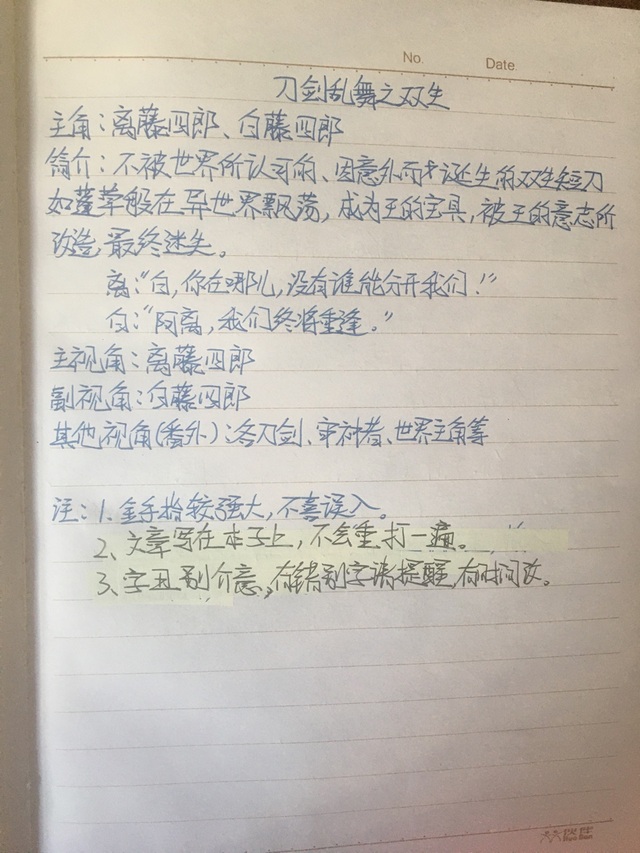 No.    Date.
刀剑乱舞之双生
主角：离藤四郎、白藤四郎
简介：不被世界所认可的、因意外而才诞生的双生短刀
如蓬草般在异世界飘荡，成为王的宝具，被王的意志所
改造，最终迷失。
离：“白，你在哪儿，没有谁能分开我们！”
白：“阿离，我们终将重逢。”
主视角：离藤四郎
副视角：白藤四郎
其他视角（番外）：各刀剑、审神者、世界主角等
注：1. 金手指较强大，不喜误入。
2、文章写在本子上，不会重打一遍。
3、字丑别介意，有错别字请提醒，有时间改。